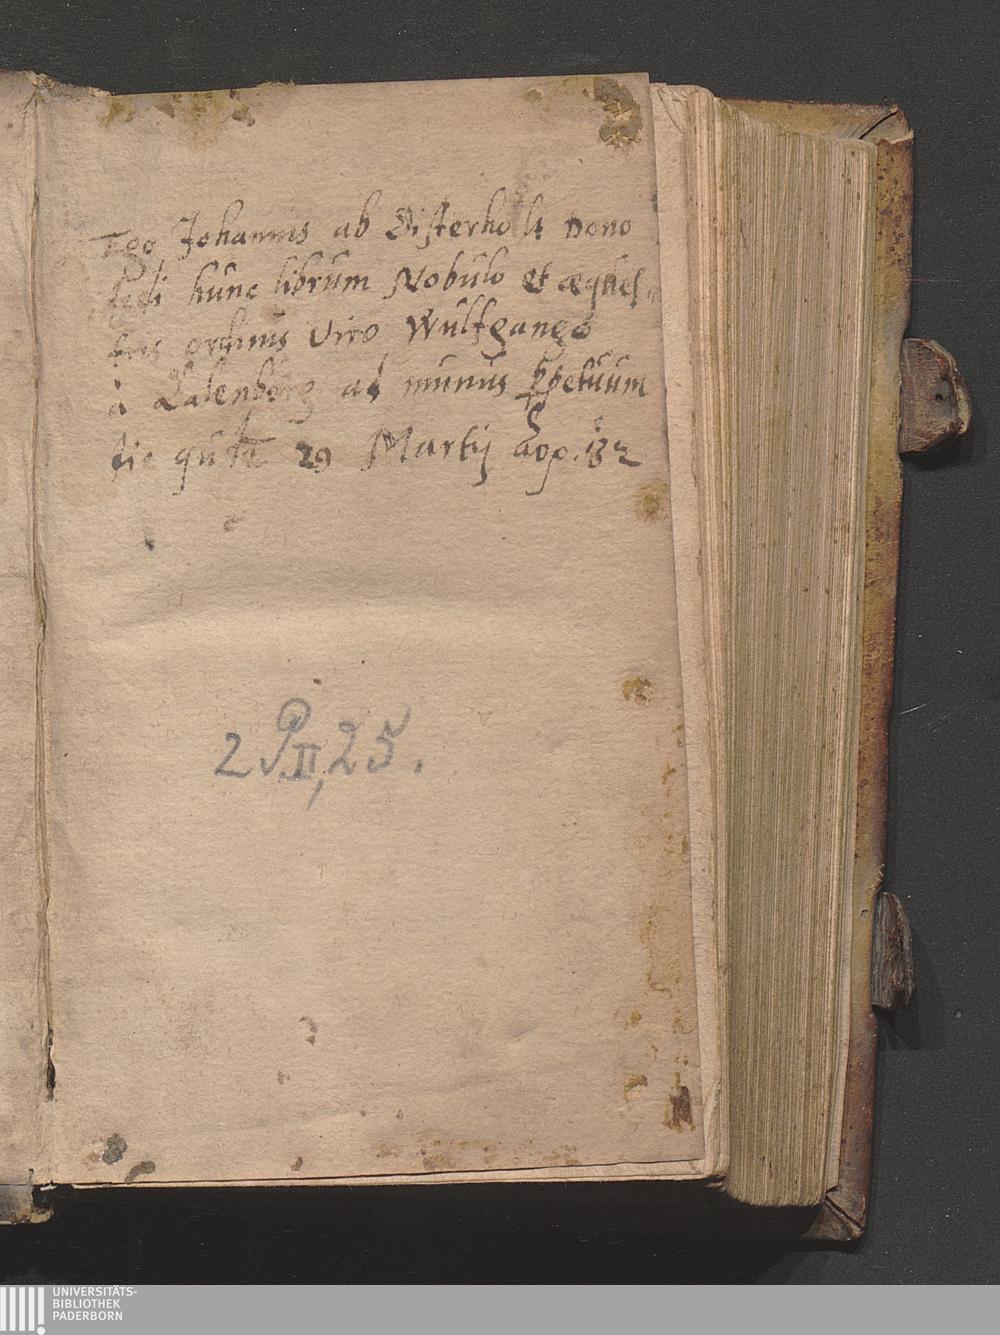 Ego Johannes ab Disterholt Dono
dedi hunc librum Nobulo et æques,,
tris ordinis Viro Wulfgango
à Lalenborg ad munus ꝑpetuum
29 Martij 82
2 P. II, 25.
UNIVERSITÄTS-
BIBLIOTHEK
PADERBORN